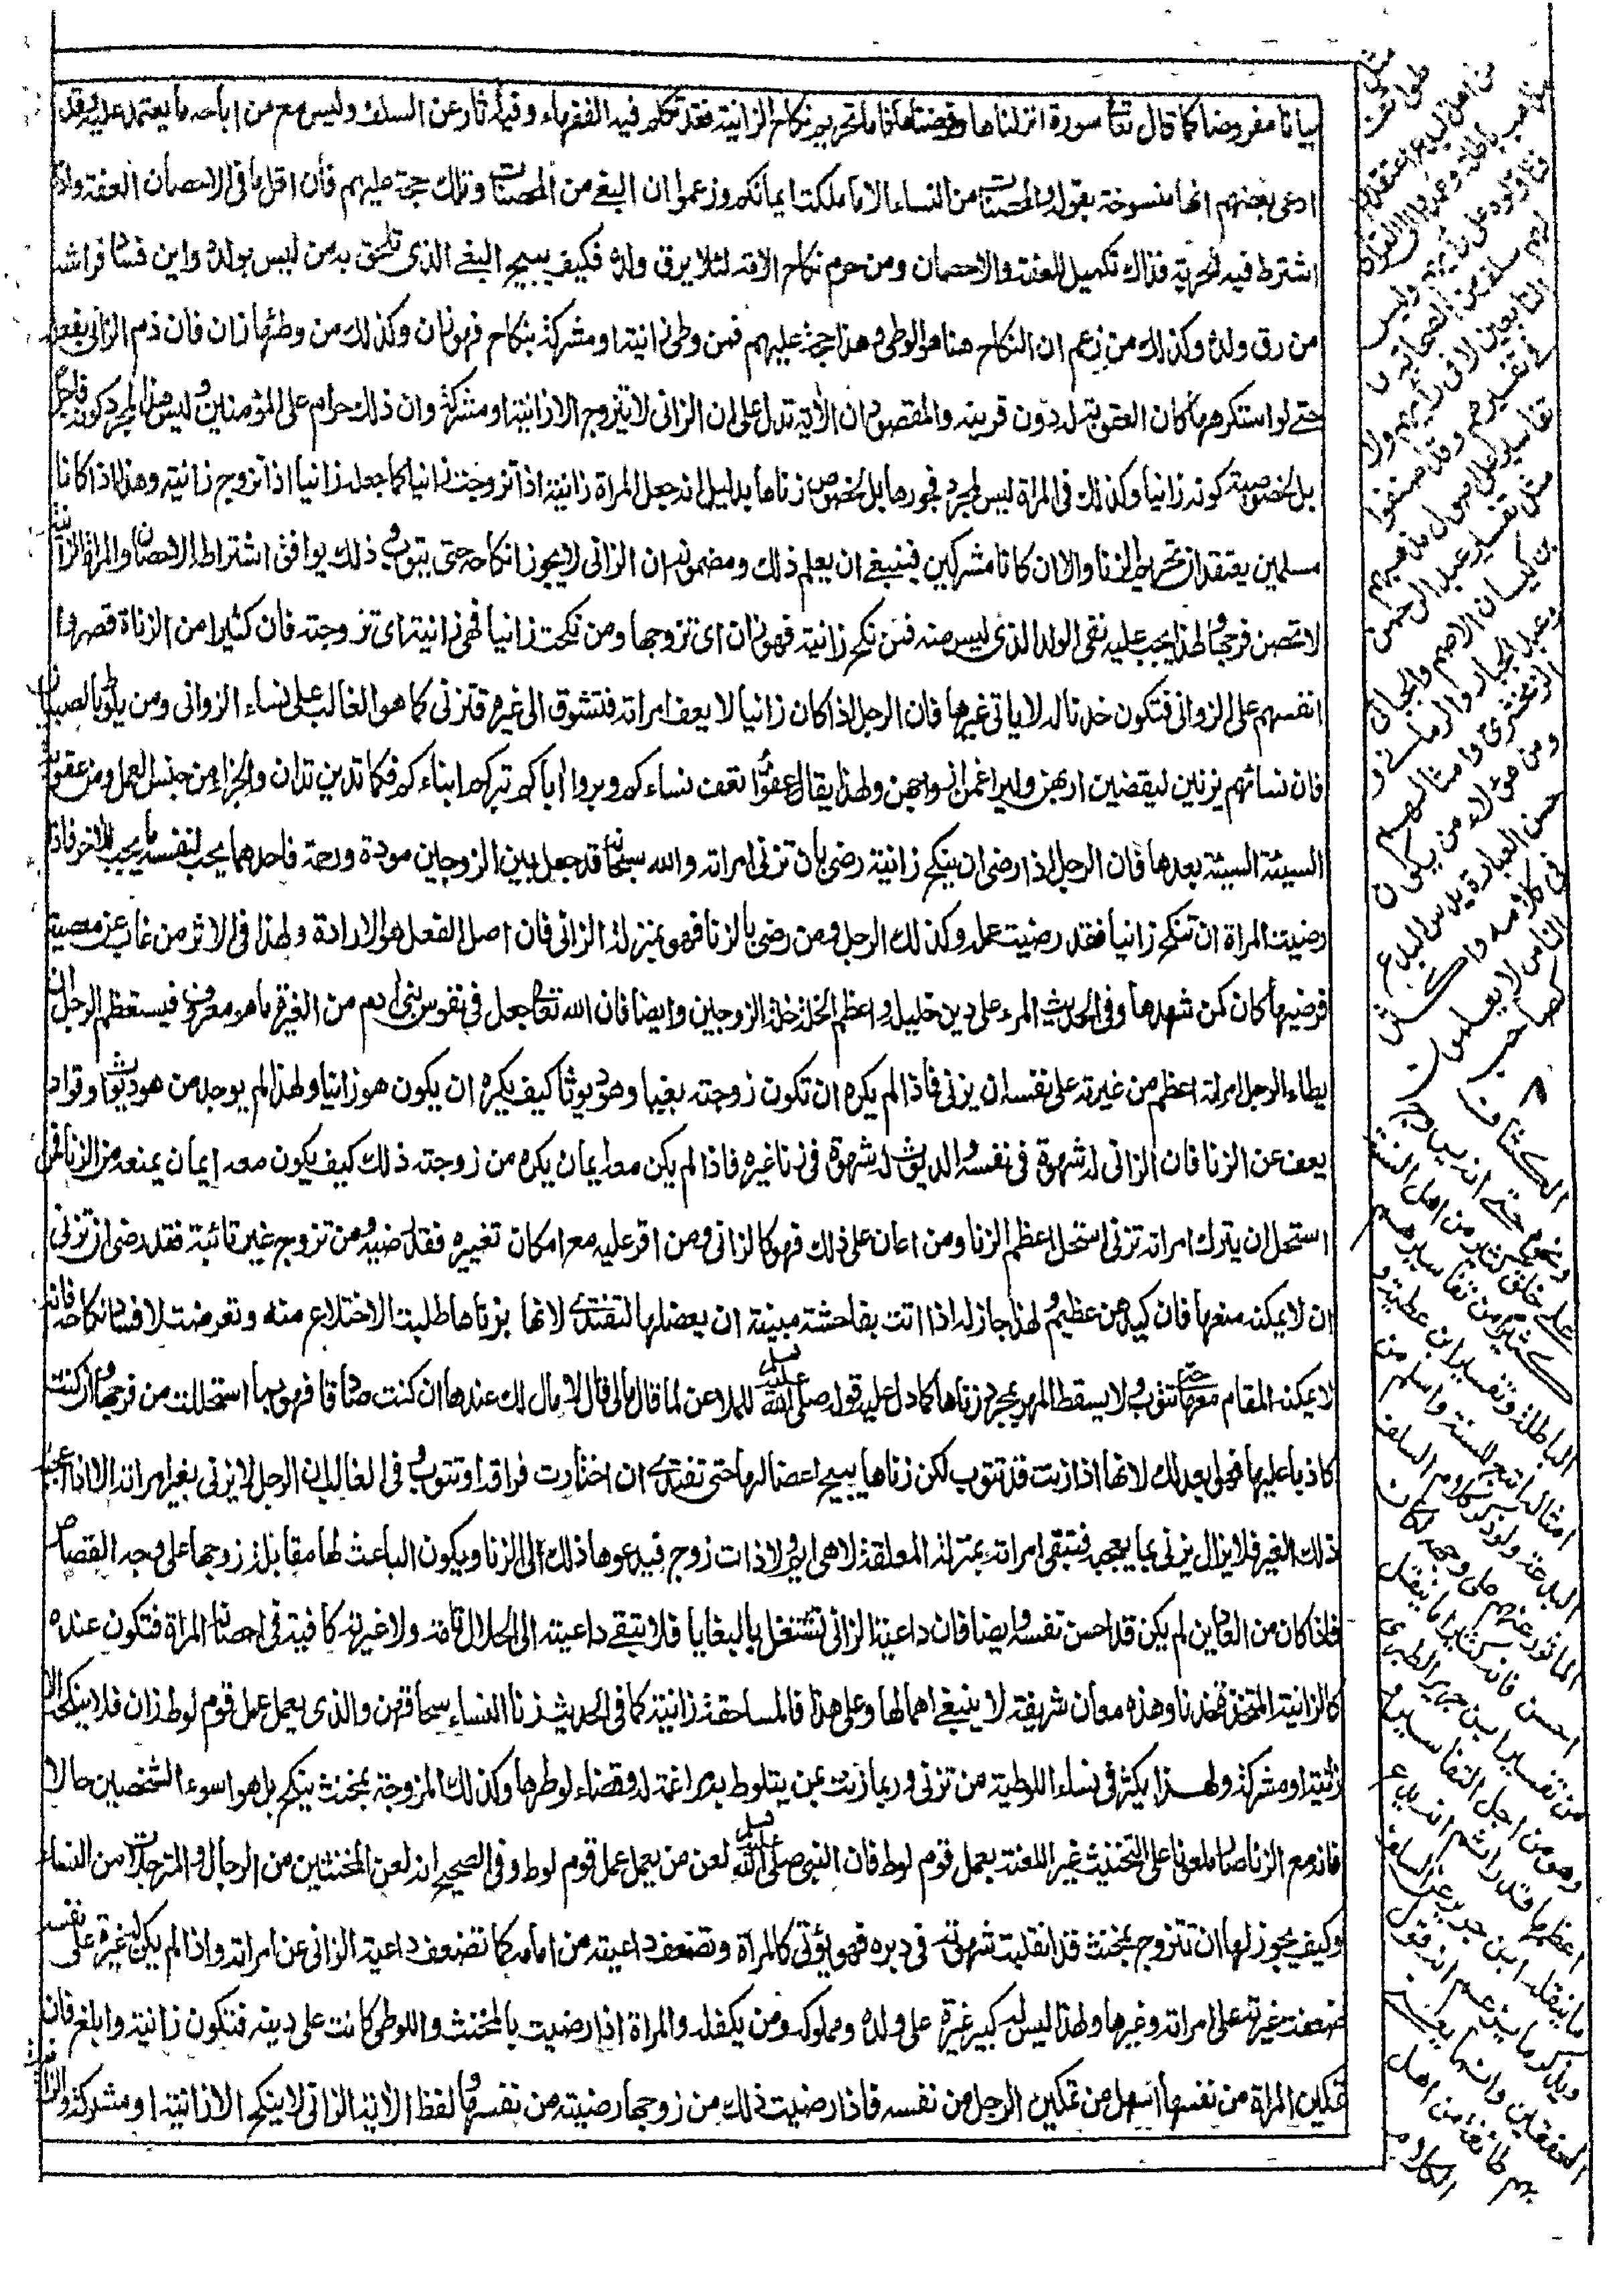 بيانا مفروضا كما قال تعا سورة انزلناها وفرضناها فاما تحريم نكاح الزانية فقد تكلم فيه الفقهاء وفيه آثار عن السلف وليس مع من اباحه ما يعتمد عليه وقد
ادعى بعضهم انها منسوخة بقوله والمحصنات من النساء الا ما ملكت ايمانكم وزعموا ان البغي من المحصنات وتلك حجة عليهم فان اقل ما في الاحصان العفة واذا
اشترط فيه الحرية فذاك تكميل للعفة والاحصان ومن حرم نكاح الامة لئلا يرق ولده فكيف يبيح البغي الذي تلحق به من ليس بولده واين فساد فراشه
من رق ولده وكذلك من زعم ان النكاح هنا هو الوطى وهذا حجة عليهم فمن وطى زانية او مشركة بنكاح فهو زان وكذلك من وطئها زان فان ذم الزاني بفعله
حتے لو استكرهها كان العقوبة له دون قرينه والمقصود ان الآية تدل على ان الزاني لا يتزوج الا زانية او مشركة وان ذلك حرام على المؤمنين وليس هذا لمجرد كونه فاجرا
بل لخصوصية كونه زانيا وكذلك في المرأة ليس لمجرد فجورها بل لخصوص زناها بدليل انه جعل المراة زانية اذا تزوجت زانيا كما جعله زانيا اذا تزوج زانية وهذا اذا كانا
مسلمين يعتقدان تحريم الزنا والا ان كانا مشركين فينبغي ان يعلم ذلك ومضمونه ان الزاني لا يجوز انكاحه حتى يتوب وذلك يوافق اشتراط الاحصان والمراة الزانية
لا تحصن فرجها ولهذا يجب عليه نفى الولد الذي ليس منه فمن نكح زانية فهو زان اى تزوجها ومن نكحت زانيا فهى زانية اى تزوجته فان كثيرا من الزناة قصروا
انفسهم على الزوانى فتكون خدنا له لا ياتى غيرها فان الرجل اذا كان زانيا لا يعف امراته فتتشوق الى غيره فتزنى كما هو الغالب على نساء الزوانى ومن يلوط بالصبيان
فان نسائهم يزنين ليقضين اربهن وليراغمن ازواجهن ولهذا يقال عفوا تعف نساءكم وبروا اباكم تبركم ابناءكم فكما تدين تدان والجزاء من جنس العمل ومن عقوبة
السيئة السيئة بعدها فان الرجل اذا رضى ان ينكح زانية رضى بان تزنى امراته والله سبحانه قد جعل بين الزوجين مودة ورحمة فاحدهما يحب لنفسه ما يحب للآخر فاذا
رضيت المراة ان تنكح زانيا فقد رضيت عمله وكذلك الرجل ومن رضى بالزنا فهو بمنزلة الزانى فان اصل الفعل هو الارادة ولهذا فى الاثر من غاب عن معصية
فرضيها كان كمن شهدها وفى الحديث المرء على دين خليله واعظم الخلة خلة الزوجين وايضا فان الله تعا جعل فى نفوس بنى ادم من الغيرة ما هو معروف فيستعظم الرجل ان
يطاء الرجل امراته اعظم من غيرته على نفسه ان يزنى فاذا لم يكره ان تكون زوجته بغيا وهو ديوثا كيف يكره ان يكون هو زانيا ولهذا لم يوجد من هو ديوثا او قواد
يعف عن الزنا فان الزانى له شهوة فى نفسه والديوث له شهوة فى زنا غيره فاذا لم يكن معه ايمان يكره من زوجته ذلك كيف يكون معه ايمان يمنعه من الزنا فمن
استحل ان يترك امراته تزنى استحل اعظم الزنا ومن اعان على ذلك فهو كالزانى ومن اقر عليه مع امكان تغييره فقد رضيه ومن تزوج غير تائبة فقد رضى ان تزنى
ان لا يمكنه منعها فان كيدهن عظيم ولهذا جاز له اذا اتت بفاحشة مبينة ان يعضلها لتفتدى لانها بزناها طلبت الاختلاع منه وتعرضت لافساد نكاحه فانه
لا يمكنه المقام معها حتى تتوب ولا يسقط المهر بمجرد زناها كما دل عليه قوله صلى الله عليه وسلم للملاعن لما قال مالى قال لا مال لك عندها ان كنت صادقا فهو بما استحللت من فرجها وان كنت
كاذبا عليها فهو ابعد لك لانها اذا زنت قد تتوب لكن زناها يبيح اعضالها حتى تفتدى ان اختارت فراقه او تتوب وفى الغالب ان الرجل لا يزنى بغير امراته الا اذا اعجبه
ذلك الغير فلا يزال يزنى بما يعجبه فتبقى امراته بمنزلة المعلقة لا هى ايم ولا ذات زوج فيدعوها ذلك الى الزنا ويكون الباعث لها مقابلة زوجها على وجه القصاص
فاذا كان من العادين لم يكن قد احسن نفسه وايضا فان داعية الزانى تشتغل بالبغايا فلا يبقى داعيته الى الحلال تامة ولا غيرته كافية فى احصان المراة فتكون عنده
كالزانية المتخذة خدنا وهذه معان شريفة لا ينبغى اهمالها وعلى هذا فالمساحقة زانية كما فى الحديث زنا النساء سحاقهن والذى يعمل عمل قوم لوط زان فلا ينكح الا
زانية او مشركة ولهذا يكثر فى نساء اللوطية من تزنى وربما زنت بمن يتلوط به مراغمة له وقضاء لوطرها وكذلك المزوجة بمخنث ينكح بل هو اسوء الشخصين حالا
فانه مع الزنا صار ملعونا على التخنيث غير اللعنة بعمل قوم لوط فان النبى صلى الله عليه وسلم لعن من يعمل عمل قوم لوط وفى الصحيح انه لعن المخنثين من الرجال والمترجلات من النساء
وكيف يجوز لها ان تتزوج بمخنث قد انقلبت شهوته فى دبره فهو يؤتى كالمراة وتضعف داعيته من امامه كما تضعف داعية الزانى عن امراته واذا لم يكن له غيرة على نفسه
ضعفت غيرته على امراته وغيرها ولهذا ليس له كبير غيرة على ولده ومملوكه ومن يكفله والمراة اذا رضيت بالمخنث واللوطى كانت على دينه فتكون زانية وابلغ فان
تمكين المراة من نفسها اسهل من تمكين الرجل من نفسه فاذا رضيت ذلك من زوجها رضيته من نفسها ولفظ الآية الزانى لا ينكح الا زانية او مشركة والزانية
من اصل
باطلة وعمدوا الى القران
سلف من الصحابة
التابعين لا فى رأيهم ولا
فى تفسيرهم وقد صنفوا
تفاسير على اصول مذهبهم
مثل تفسير عبد الرحمن
بن كيسان الاصم والجبائى
وعبد الجبار والرمانى و
الزمخشرى وامثالهم
ومن هؤلاء من يكون
حسن العبارة يدس البدع
فى كلامه واكثر
الناس لا يعلمون
كصاحب
الكشاف
ونحوه حتے انه يروج
على خلق كثير من اهل السنة
كثير من تفاسيرهم
الباطلة وتفسير ابن عطية و
امثاله اتبع للسنة واسلم من
البدعة ولو ذكر كلام السلف
الماثور عنهم على وجهه لكان
احسن فانه كثيرا ما ينقل
من تفسير ابن جرير الطبرى
وهو من اجل التفاسير و
اعظمها قدرا ثم انه يدع
ما ينقله ابن جرير عن السلف
ويذكر ما يزعم انه قول
المحققين وانما يعنى
بهم طائفة من اهل
الكلام